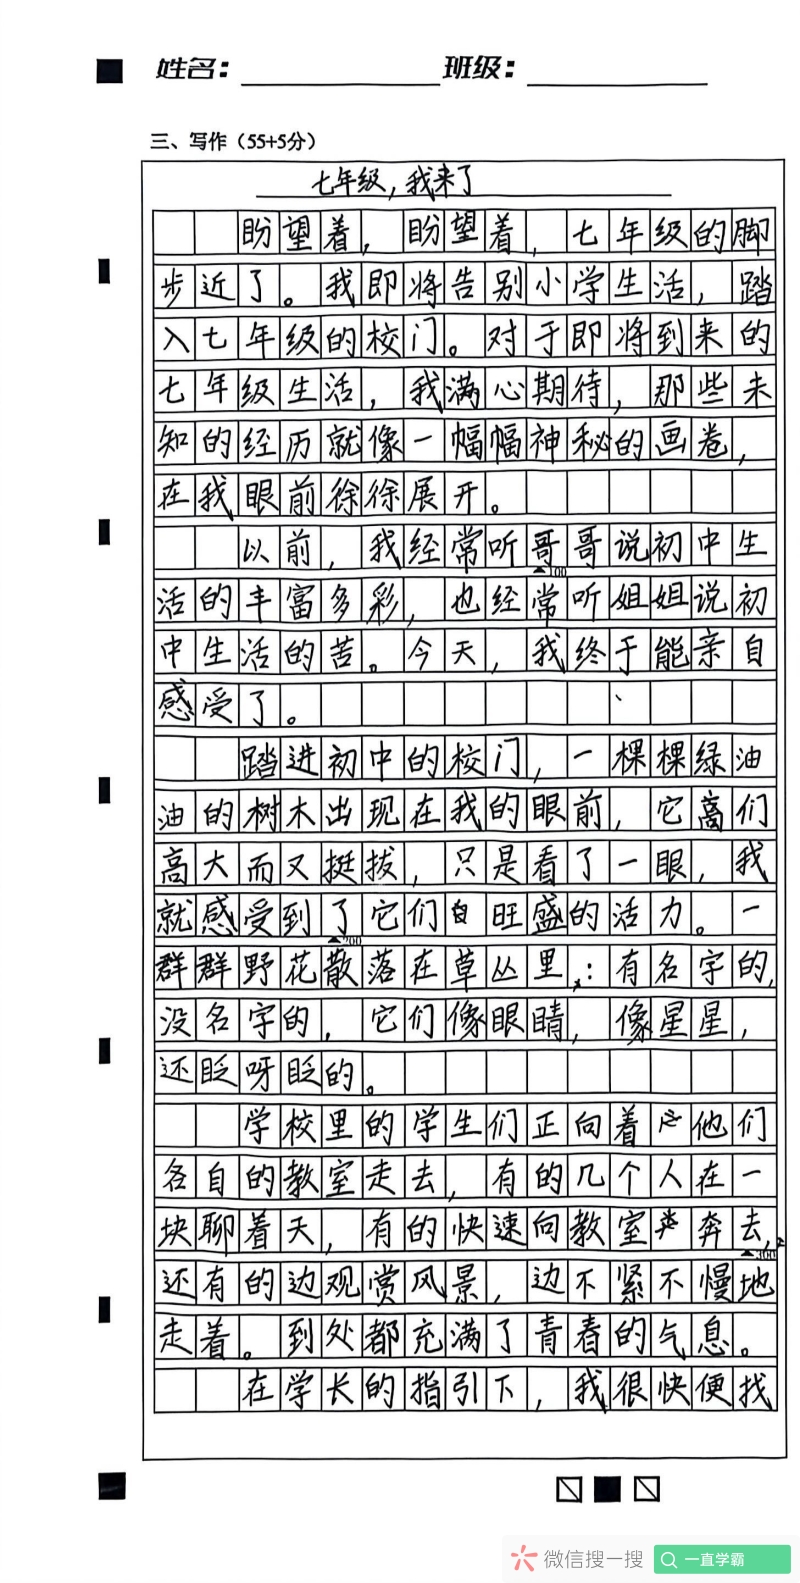 姓名：
班级：
三、写作（55+5分）
七年级，我来了
盼望着，盼望着，七年级的脚
步近了。我即将告别小学生活，踏
入七年级的校门。对于即将到来的
七年级生活，我满心期待，那些未
知的经历就像一幅幅神秘的画卷，
在我眼前徐徐展开。
以前，我经常听哥哥说初中生
100
活的丰富多彩，也经常听姐姐说初
中生活的苦。今天，我终于能亲自
感受了。
踏进初中的校门，一棵棵绿油
油的树木出现在我的眼前，它高们
高大而又挺拔，只是看了一眼，我
就感受到了它们旺盛的活力。一
200
群群野花散落在草丛里：有名字的，
没名字的，它们像眼睛，像星星，
还眨呀眨的。
学校里的学生们正向着他们
各自的教室走去，有的几个人在一
块聊着天，有的快速向教室奔去，
300
还有的边观赏风景，边不紧不慢地
走着。到处都充满了青春的气息。
在学长的指引下，我很快便找
微信搜一搜
一直学霸